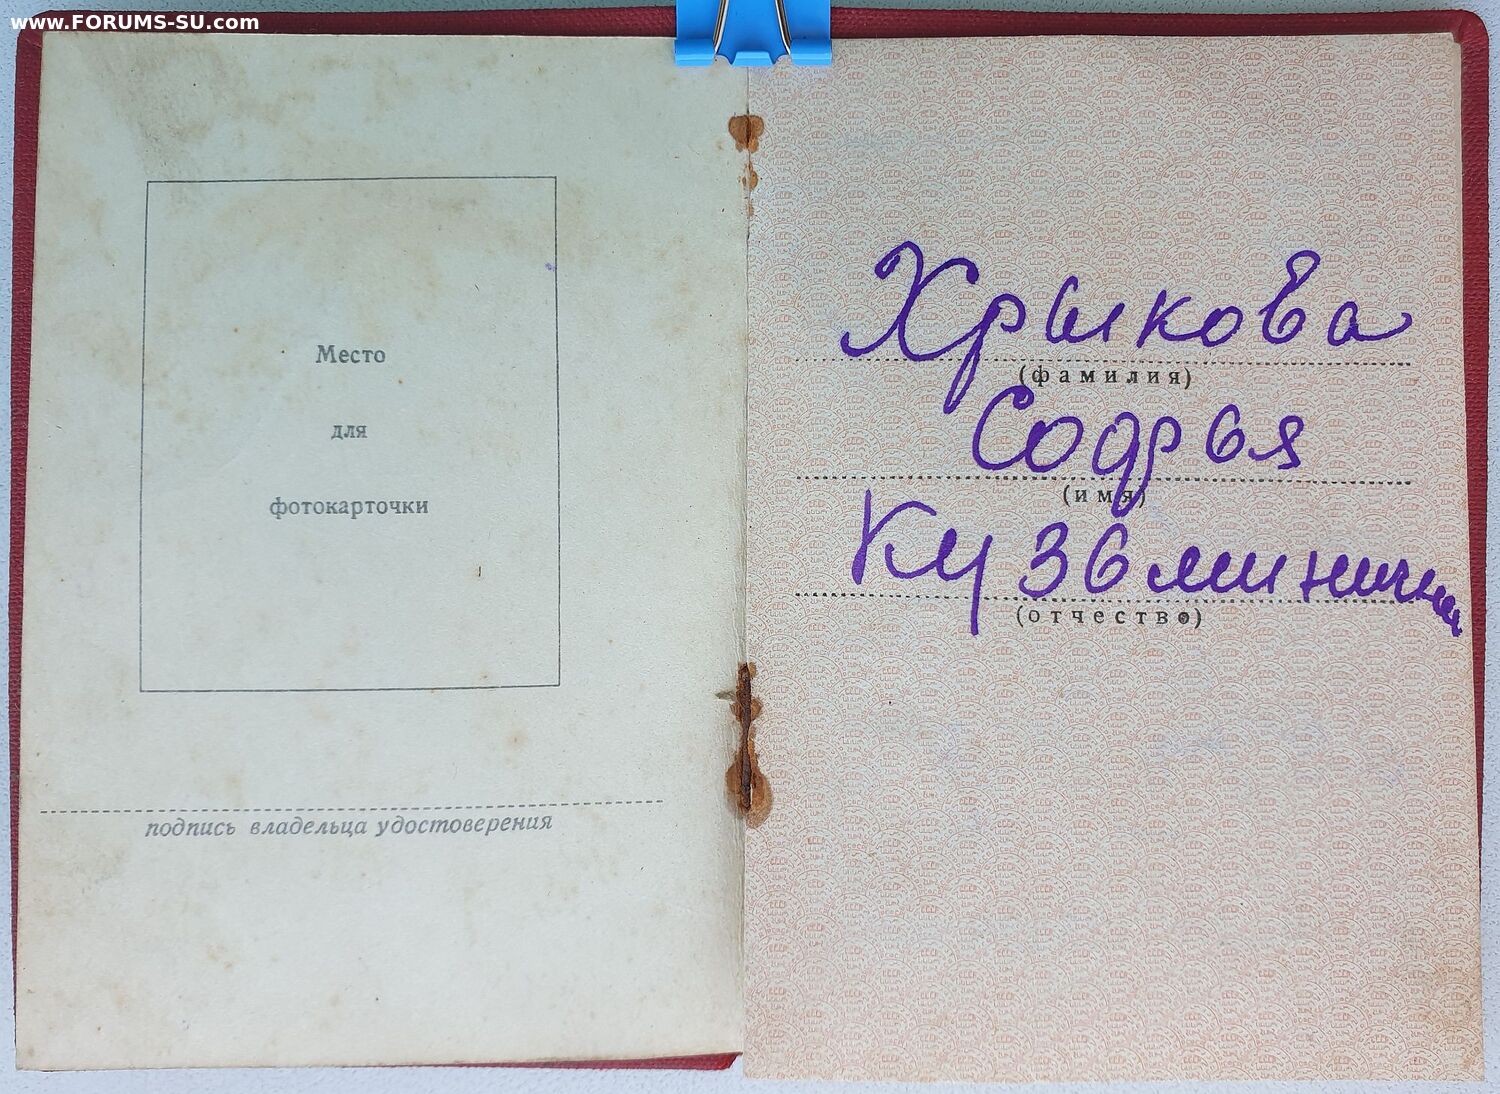 www.FORUMS-SU.com
Место
для
фотокарточки
подпись владельца удостоверения
Хрыкова
(фамилия)
Софья
(имя)
Кузьминична
(отчество)